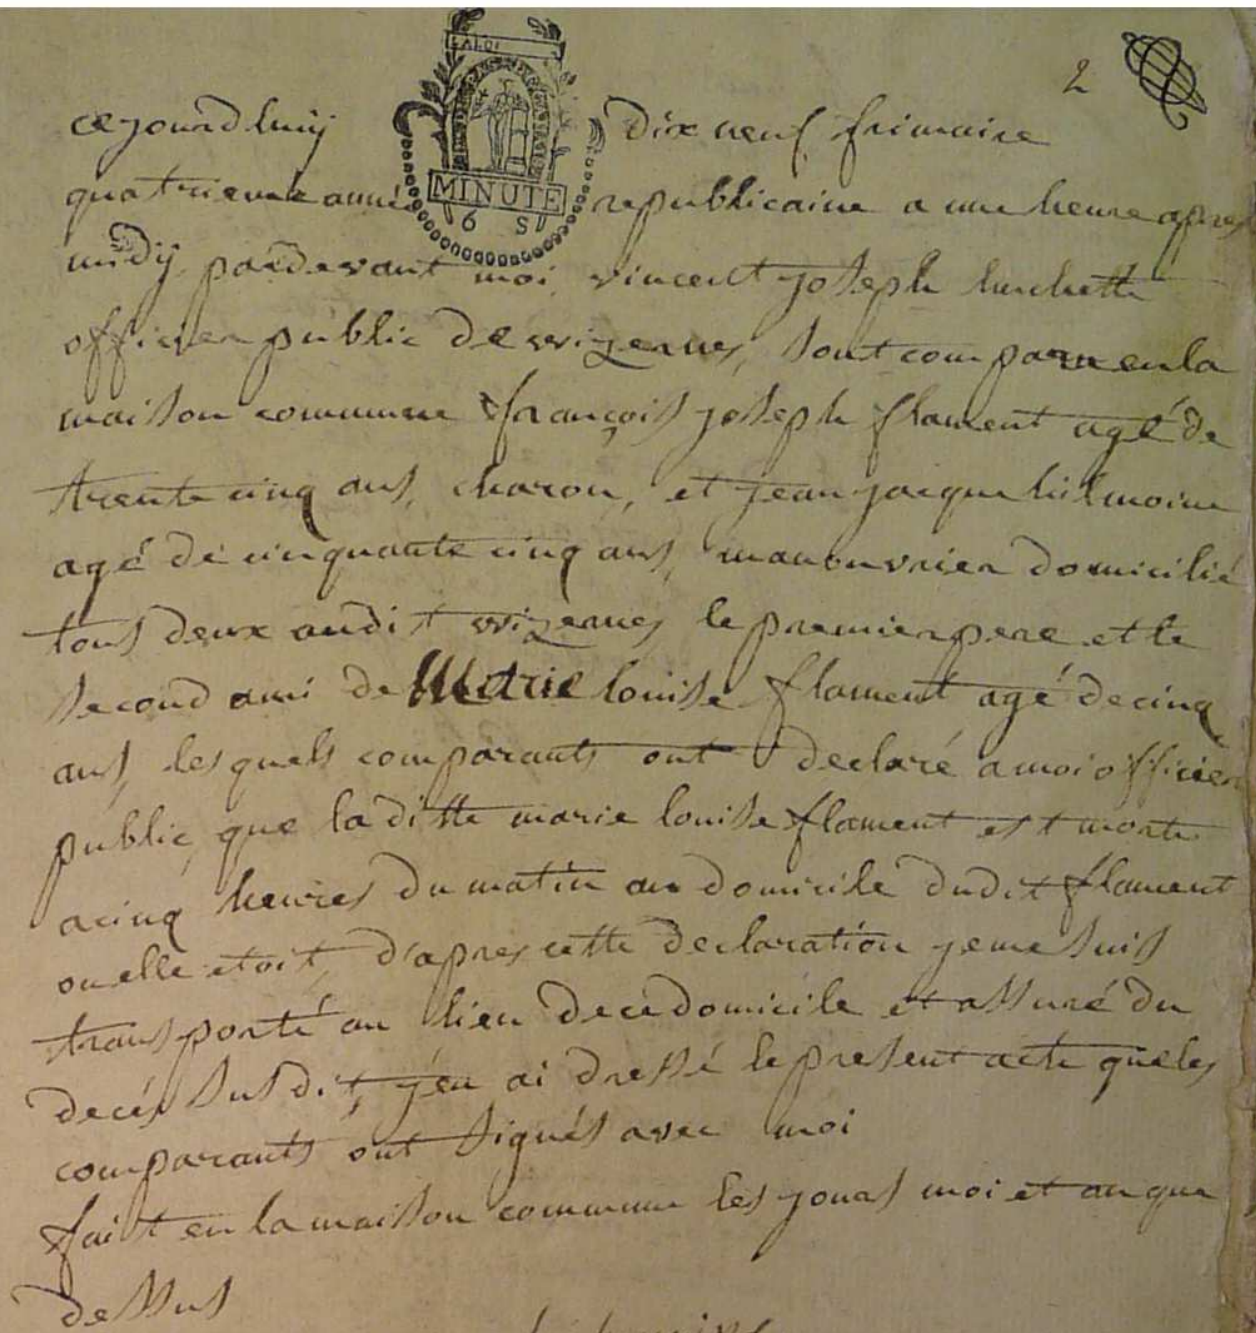 2
LA LOI
MINUTE
6 S
cejourdhuij dix neuf frimaire
quatrieme année republicaine a une heure apres
midÿ, pardevant moi vincent joseph
officier public de wizernes, sont comparu en la
maison commune françois joseph flament agé de
trente cinq ans, charon, et jean jacque
agé de cinquante cinq ans, manouvrier domicilié
tous deux audit wizernes le premier pere et le
second ami de Marie louise flament agé de cinq
ans, lesquels comparants ont declaré a moi officier
public, que la ditte marie louise flament est morte
a cinq heures du matin au domicile dudit flament
ou elle etoit, d'apres cette declaration je me suis
transporté au lieu de ce domicile et assuré du
decés susdit, j'en ai dressé le present acte que les
comparants ont signés avec moi
fait en la maison commune les jours moi et an que
dessus